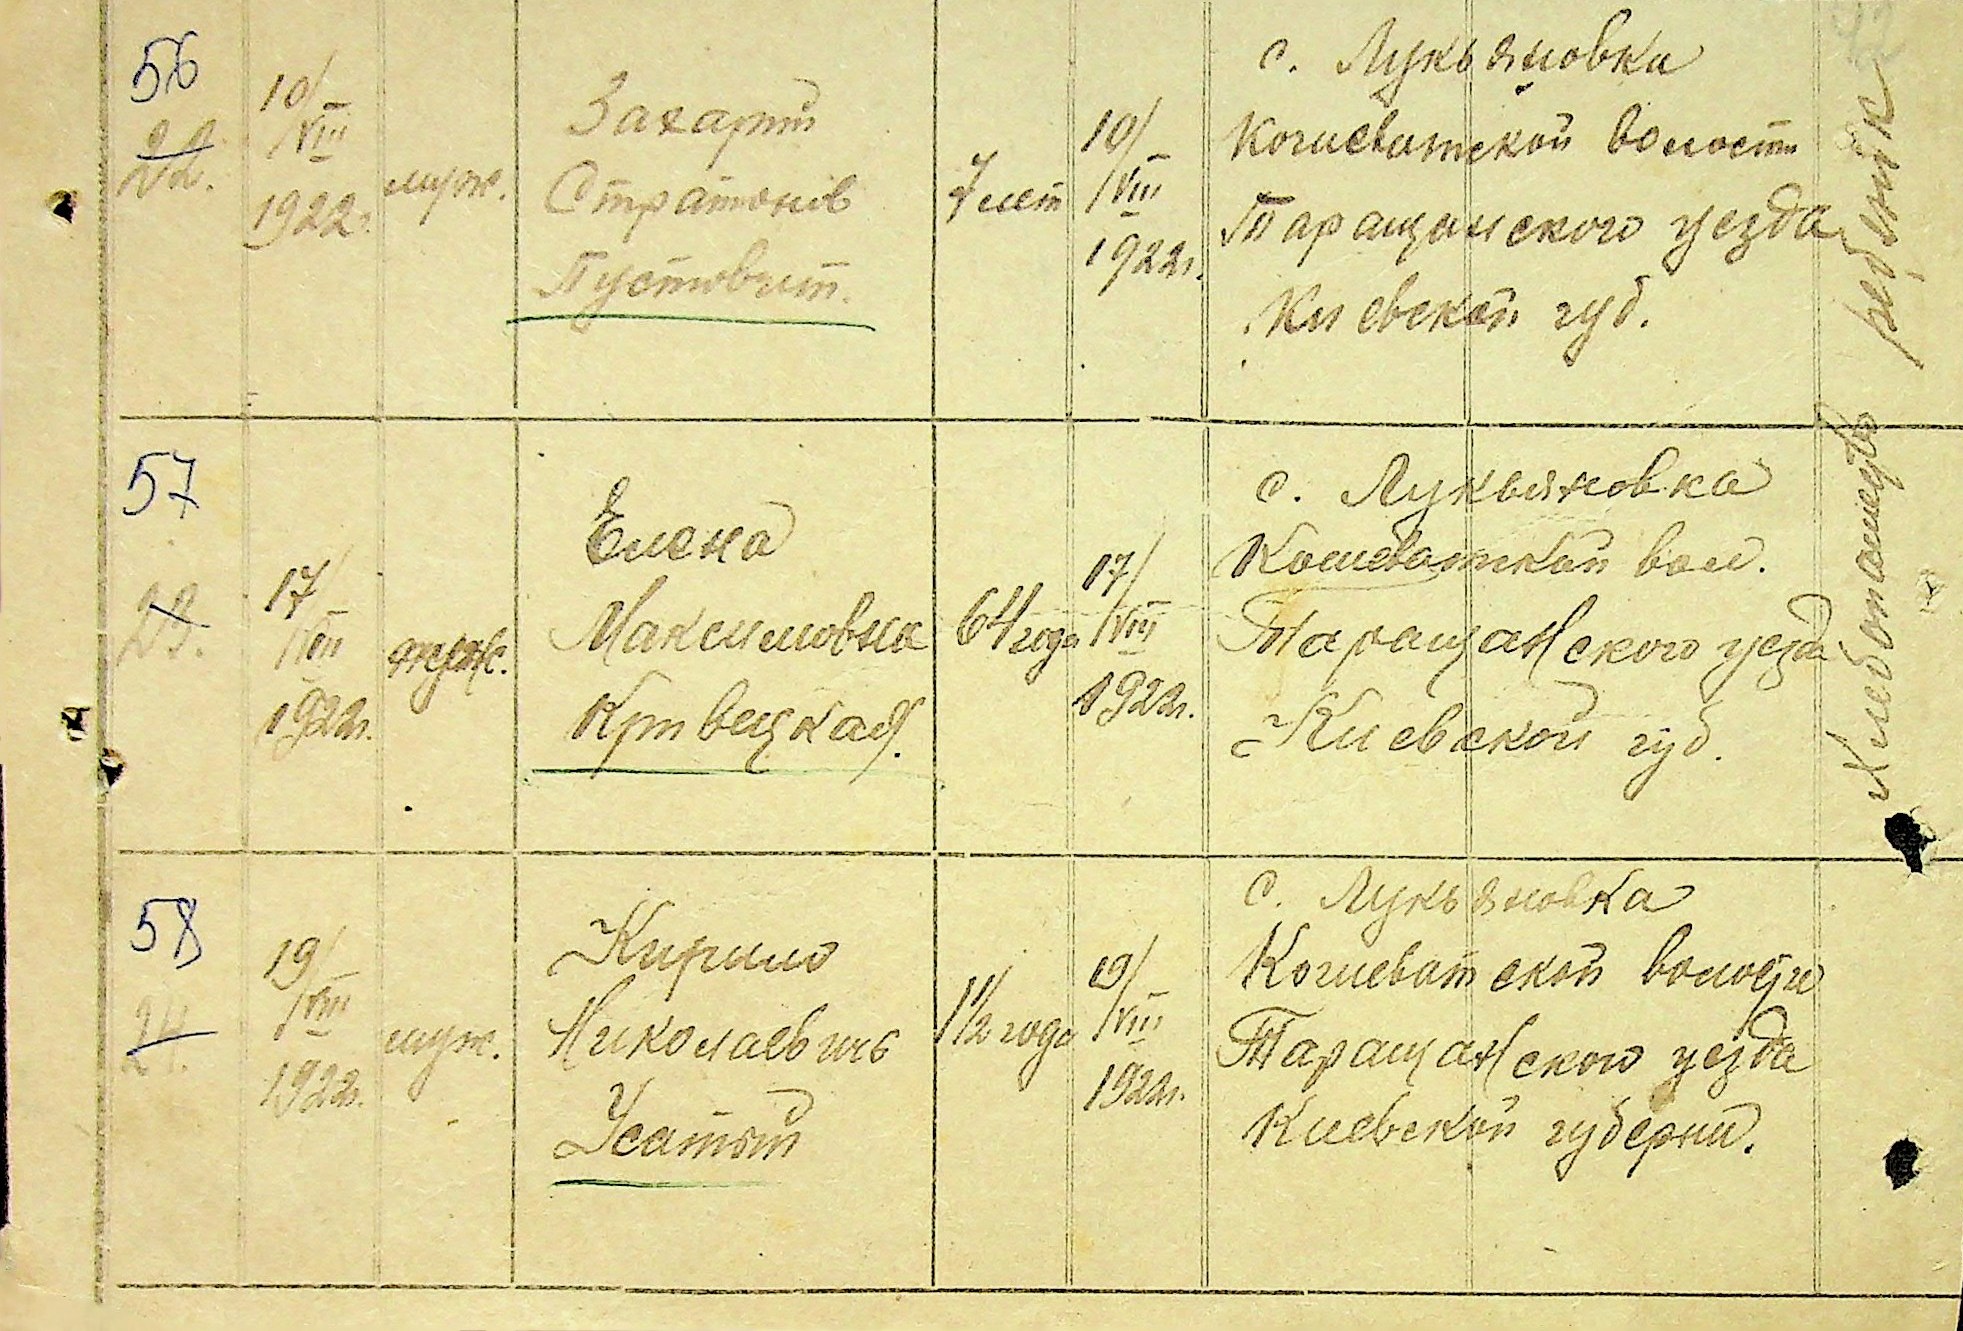 56
22.
10/VIII
1922г.
муж.
Захарий
Стратонів
Пустовит.
7 лет
10/VIII
1922г.
с. Лукьяновка
Кошеватской волости
Таращанского уезда
Киевской губ.
57
23.
17/VIII
1922г.
женс.
Елена
Максимовна
Кривецкая.
64 года
17/VIII
1922г.
с. Лукьяновка
Кошеватской вол.
Таращанского уезда
Киевской губ.
Хлебопашество
58
24.
19/VIII
1922г.
муж.
Кирило
Николаевичь
Усатый
1 1/2 года
19/VIII
1922г.
с. Лукьяновка
Кошеватской волости
Таращанского уезда
Киевской губернии.